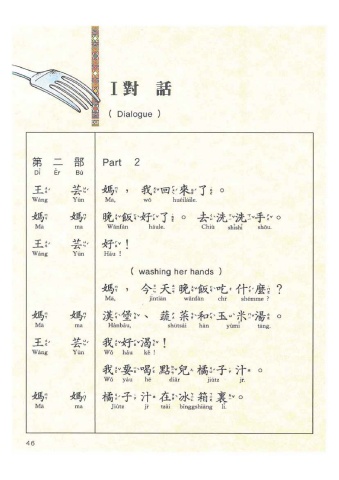 I 對 話
( Dialogue )
第 二 部 Part 2
Dì Èr Bù
王 芸 媽，我回來了。
Wáng Yún Mā, wǒ huéiláile.
媽 媽 晚飯好了。去洗洗手。
Mā ma Wǎnfàn hǎule. Chiù shǐshǐ shǒu.
王 芸 好！
Wáng Yún Hǎu !
( washing her hands )
媽，今天晚飯吃什麼？
Mā, jīntiān wǎnfàn chr shémme ?
媽 媽 漢堡、蔬菜和玉米湯。
Mā ma Hànbǎu, shūtsài hàn yùmǐ tāng.
王 芸 我好渴！
Wáng Yún Wǒ hǎu kě !
我要喝點兒橘子汁。
Wǒ yàu hē diǎr jiútz jr.
媽 媽 橘子汁在冰箱裏。
Mā ma Jiútz jr tzài bīngshiāng lǐ.
46